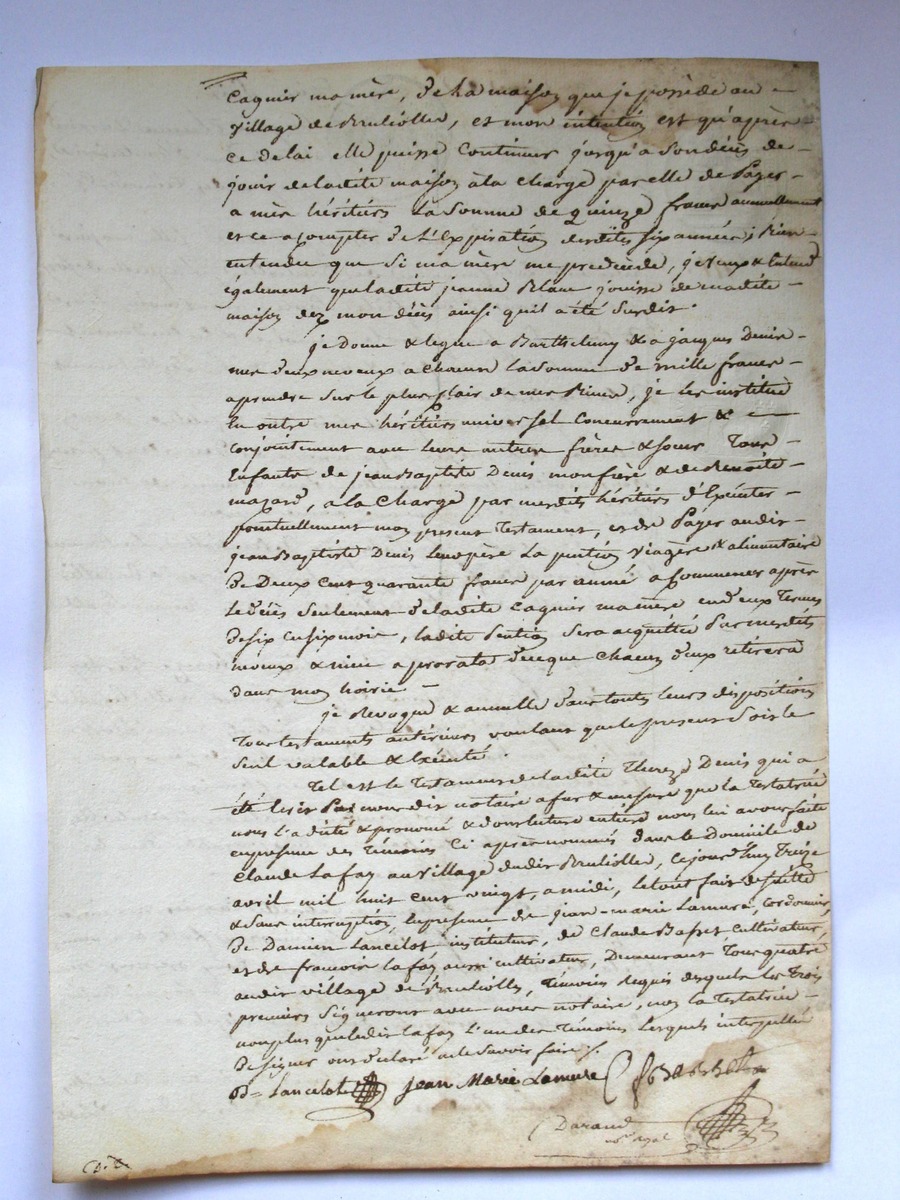 Caquir ma mère, de la maison que je possède au
Village de Brulliolles, et mon intention est qu'après
ce delai elle puisse Continuer jusqu'a son décès de
jouir de ladite maison à la charge par elle de Payer
a mes héritiers la somme de quinze francs annuellement
et ce a compter de l'Expiration desdites six années; Bien
entendu que Si ma mère me predécède, je veux & Entend
également que ladite jeanne Blanc jouisse de madite
maison dez mon décès ainsi qu'il a été Susdit.
je Donne & legue a Barthelemy & a jacques Denis
mes deux neveux a chacun la somme de mille francs
a prendre sur le plus clair de mes Biens, je les institue
En outre mes héritiers universel Concurremment &
conjointement avec leurs autres frères & sœurs Tous
Enfants de jean Baptiste Denis mon frère & de Benoite
mazard, a la Charge par mesdits héritiers d'Exécuter
ponctuellement mon present Testament, et de Payer audit
jean Baptiste Denis leur père la pention viagère & alimentaire
de Deux Cent quarante francs par année a Commencer après
le décès seulement de ladite Caquir ma mère en deux Termes
de six en six mois, ladite Pention Sera acquittée Par mesdits
neveux & nièces a prorata de ce que chacun d'eux retirera
dans mon hoirie
je Revoque & annulle dans touts leurs dispositions
Tous testaments antérieurs voulant que le present Soit le
Seul valable & Exécuté.
Tel est le Testament de ladite Thereze Denis qui a
été écrit Par nous dit notaire a fur & mesure que la Testatrice
nous l'a dicté & prononcé & dont lecture entière nous lui avons faite
en presence des Témoins Ci après nommés dans le Domicile de
Claude Lafay au village dudit Brulliolles, Cejourd'huy Treize
avril mil huit cent vingt, a midi, le tout fait de suitte
& Sans interruption, En presence de jean-marie Lamure, Cordonnier,
De Damien Lancelot instituteur, de Claude Basset Cultivateur,
et de francois Lafay aussi cultivateur, Demeurant Tous quatre
audit village de Brulliolles, Témoins requis desquels les Trois
premiers Signeront avec nous notaire, non la Testatrice
non plus que ledit Lafay l'un des Témoins Lesquels interpellé
De signer ont déclaré ne le Savoir faire /.
Lancelot Jean Marie Lamure
Durand
nore Royal